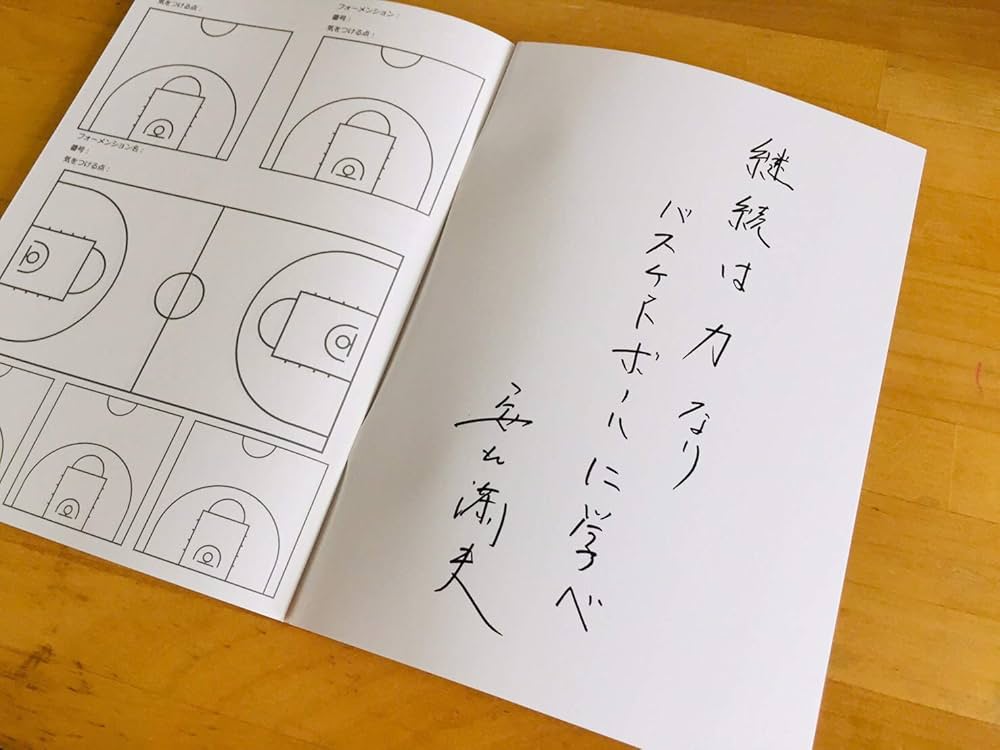 気をつける点：
フォーメンション：
番号：
気をつける点：
フォーメンション名：
番号：
気をつける点：
継続は力なり
バスケットボールに学べ
夫